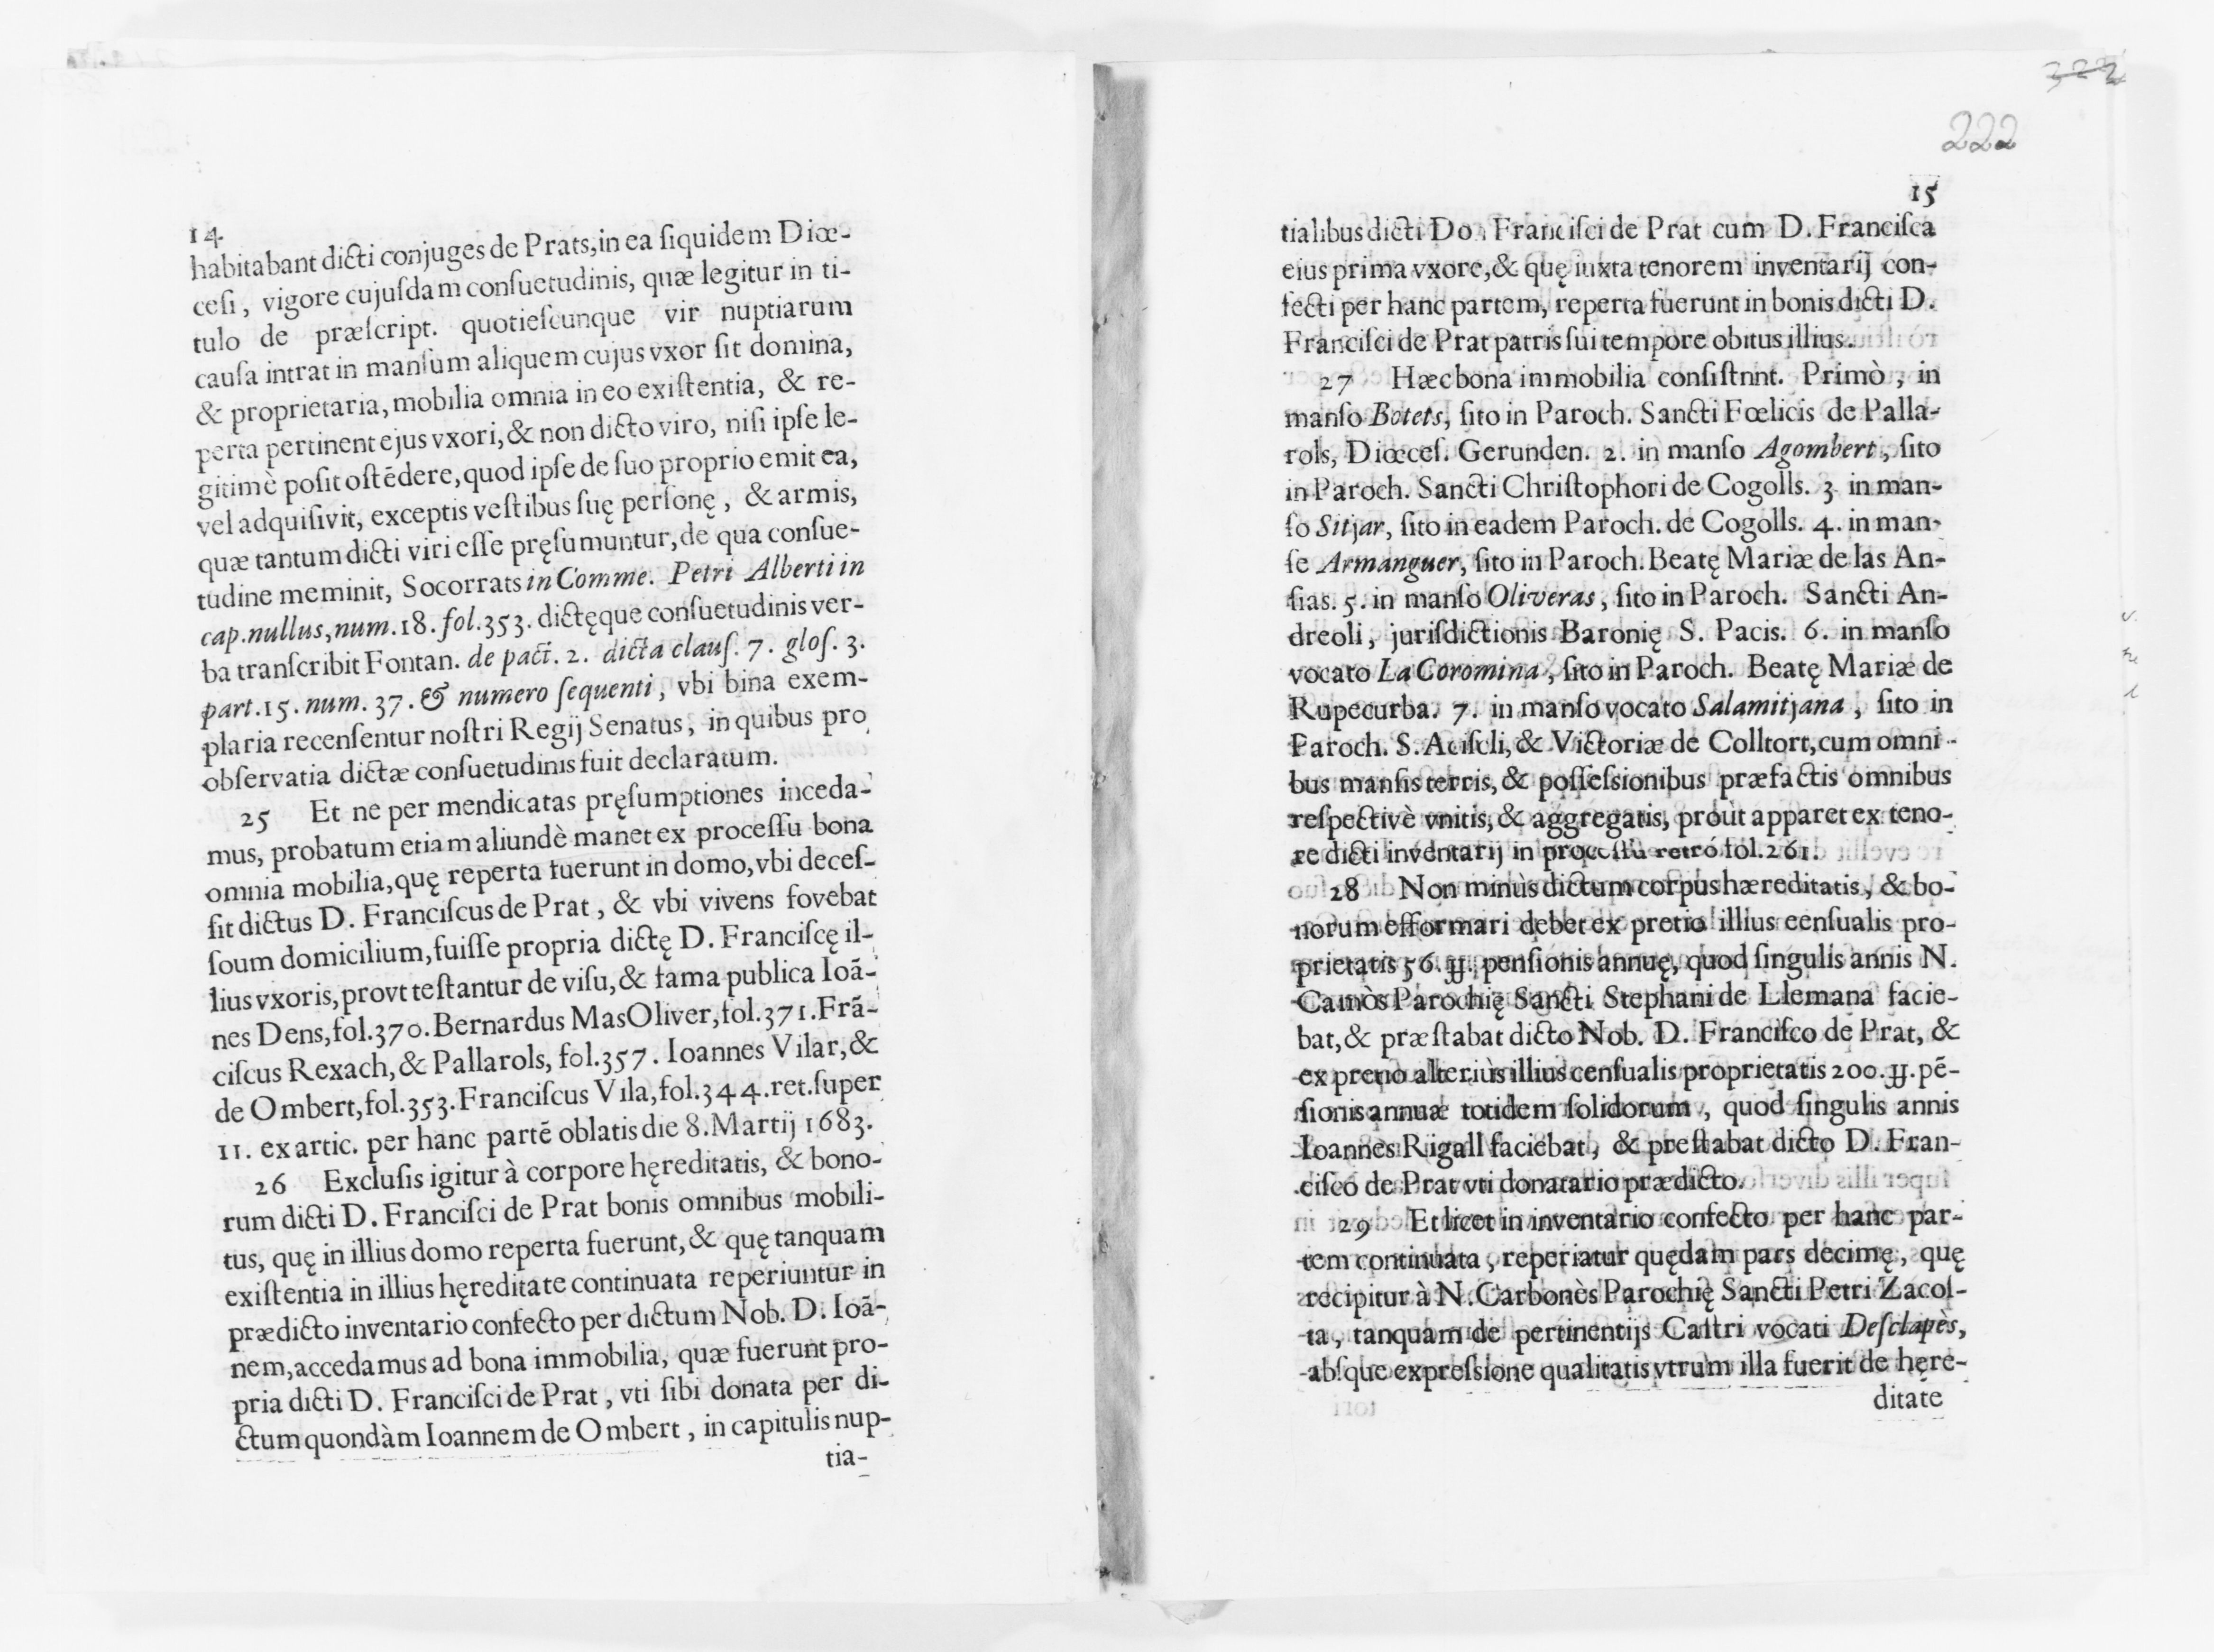 14
habitabant dicti conjuges de Prats, in ea ſiquidem Diœ-
ceſi, vigore cujuſdam conſuetudinis, quæ legitur in ti-
tulo de præſcript. quotieſcunque vir nuptiarum
cauſa intrat in manſum aliquem cujus vxor ſit domina,
& proprietaria, mobilia omnia in eo exiſtentia, & re-
perta pertinent ejus vxori, & non dicto viro, niſi ipſe le-
gitimè poſit oſtēdere, quod ipſe de ſuo proprio emit ea,
vel adquiſivit, exceptis veſtibus ſuę perſonę, & armis,
quæ tantum dicti viri eſſe pręſumuntur, de qua conſue-
tudine meminit, Socorrats in Comme. Petri Alberti in
cap. nullus, num. 18. fol. 353. dictęque conſuetudinis ver-
ba tranſcribit Fontan. de pact. 2. dicta clauſ. 7. gloſ. 3.
part. 15. num. 37. & numero ſequenti, vbi bina exem-
plaria recenſentur noſtri Regij Senatus, in quibus pro
obſervatia dictæ conſuetudinis fuit declaratum.
25 Et ne per mendicatas pręſumptiones inceda-
mus, probatum etiam aliundè manet ex proceſſu bona
omnia mobilia, quę reperta fuerunt in domo, vbi deceſ-
ſit dictus D. Franciſcus de Prat, & vbi vivens fovebat
ſoum domicilium, fuiſſe propria dictę D. Franciſcę il-
lius vxoris, provt teſtantur de viſu, & fama publica Ioā-
nes Dens, fol. 370. Bernardus MasOliver, fol. 371. Frā-
ciſcus Rexach, & Pallarols, fol. 357. Ioannes Vilar, &
de Ombert, fol. 353. Franciſcus Vila, fol. 344. ret. ſuper
11. ex artic. per hanc partē oblatis die 8. Martij 1683.
26 Excluſis igitur à corpore hęreditatis, & bono-
rum dicti D. Franciſci de Prat bonis omnibus mobili-
tus, quę in illius domo reperta fuerunt, & quę tanquam
exiſtentia in illius hęreditate continuata reperiuntur in
prædicto inventario confecto per dictum Nob. D. Ioā-
nem, accedamus ad bona immobilia, quæ fuerunt pro-
pria dicti D. Franciſci de Prat, vti ſibi donata per di-
ctum quondàm Ioannem de Ombert, in capitulis nup-
tia-
322
222
15
tialibus dicti Do. Franciſci de Prat cum D. Franciſca
eius prima vxore, & quę iuxta tenorem inventarij con-
fecti per hanc partem, reperta fuerunt in bonis dicti D.
Franciſci de Prat patris ſui tempore obitus illius.
27 Hæc bona immobilia conſiſtnnt. Primò, in
manſo Botets, ſito in Paroch. Sancti Fœlicis de Palla-
rols, Diœceſ. Gerunden. 2. in manſo Agombert, ſito
in Paroch. Sancti Chriſtophori de Cogolls. 3 in man-
ſo Sitjar, ſito in eadem Paroch. de Cogolls. 4. in man-
ſe Armanguer, ſito in Paroch. Beatę Mariæ de las An-
ſias. 5. in manſo Oliveras, ſito in Paroch. Sancti An-
dreoli, juriſdictionis Baronię S. Pacis. 6. in manſo
vocato La Coromina, ſito in Paroch. Beatę Mariæ de
Rupecurba. 7. in manſo vocato Salamitjana, ſito in
Paroch. S. Aciſcli, & Victoriæ de Colltort, cum omni-
bus manſis terris, & poſſeſsionibus præfactis omnibus
reſpectivè vnitis, & aggregatis, proùt apparet ex teno-
re dicti inventarij in proceſſu retró fol. 261.
28 Non minùs dictum corpus hæreditatis, & bo-
norum efformari debet ex pretio illius eenſualis pro-
prietatis 56. ℔. penſionis annuę, quod ſingulis annis N.
Camòs Parochię Sancti Stephani de Llemana facie-
bat, & præſtabat dicto Nob. D. Franciſco de Prat, &
ex pretio alteriùs illius cenſualis proprietatis 200. ℔. pē-
ſionis annuæ totidem ſolidorum, quod ſingulis annis
Ioannes Riigall faciebat, & preſtabat dicto D. Fran-
ciſco de Prat vti donatario prædicto.
29 Et licet in inventario confecto per hanc par-
tem continuata, reperiatur quędam pars decimę, quę
recipitur à N. Carbonès Parochię Sancti Petri Zacoſ-
ta, tanquam de pertinentijs Caſtri vocati Deſclapès,
abſque expreſsione qualitatis vtrum illa fuerit de hęre-
ditate